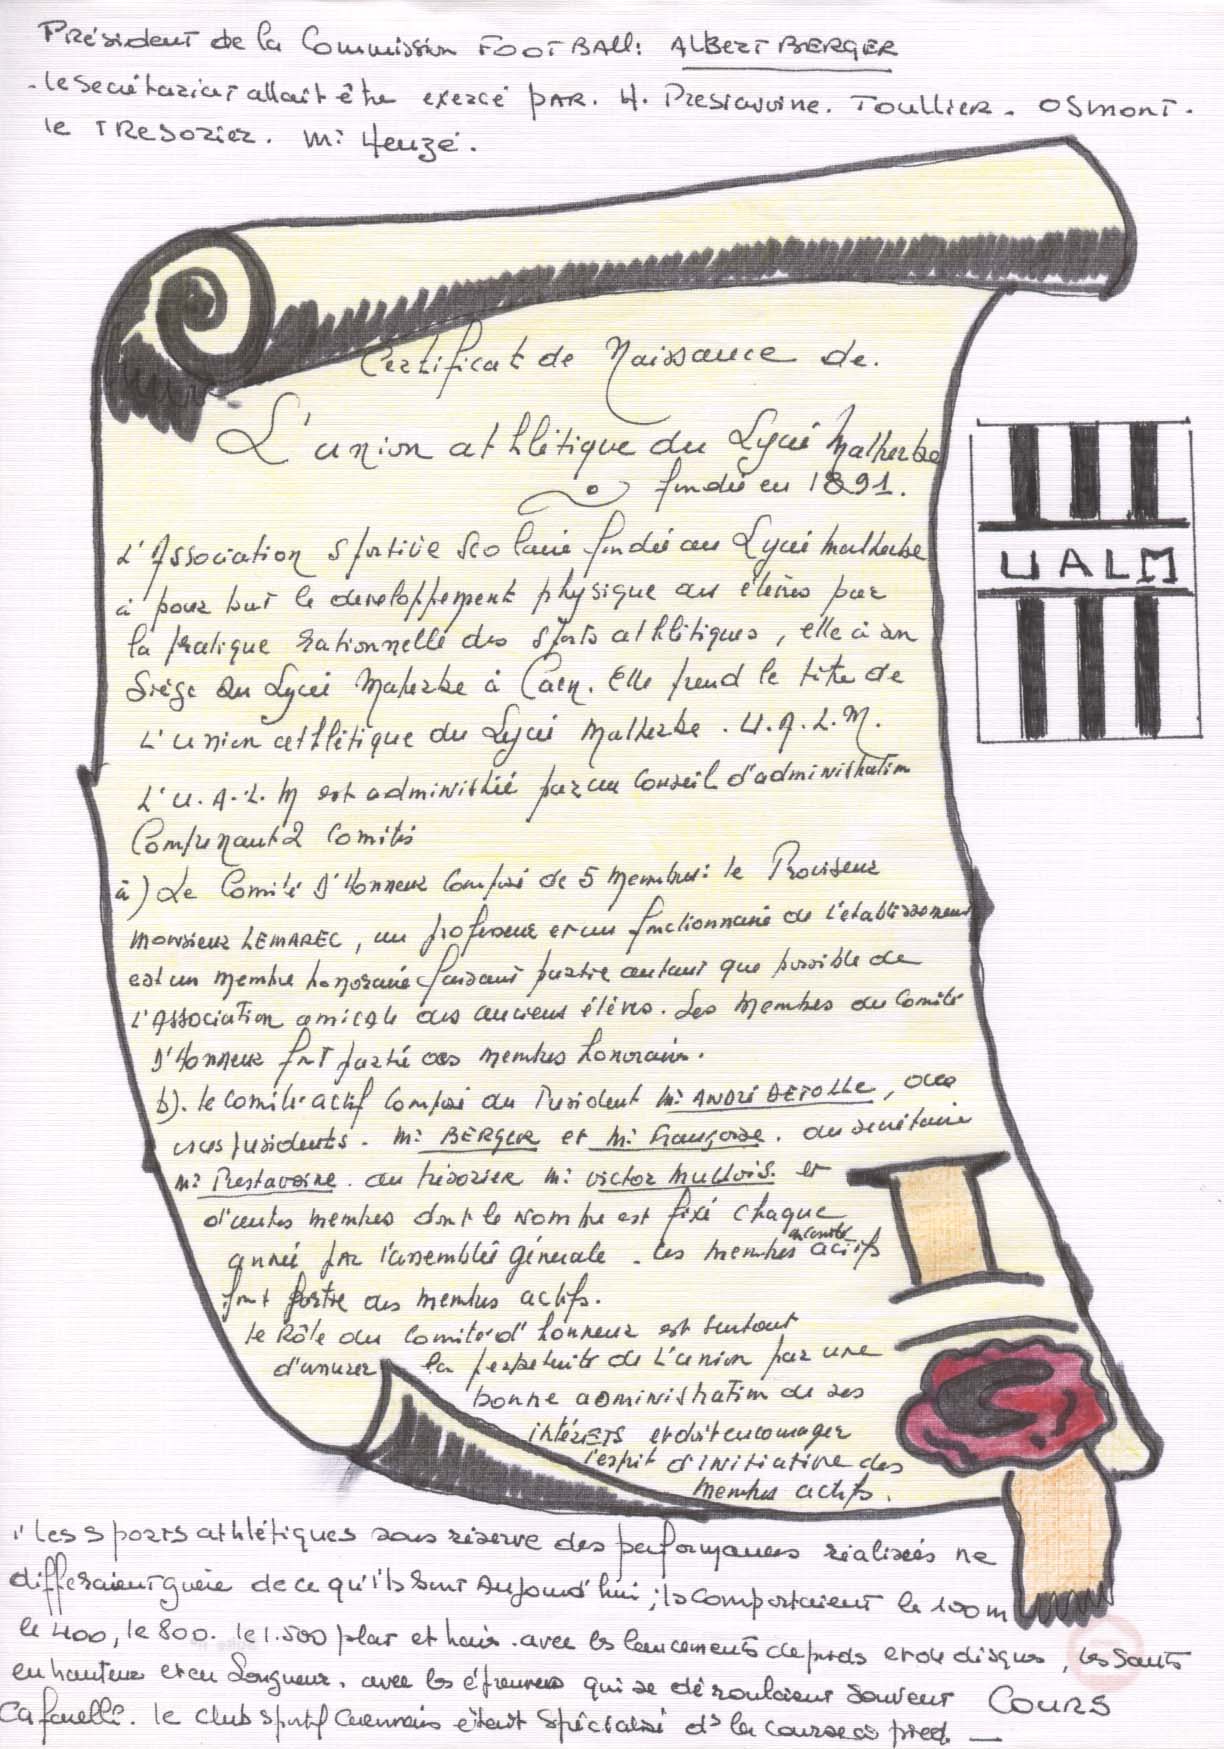 Président de la Commission FOOTBALL: ALBERT BERGER
- le secrétariat allait être exercé PAR. H. Prestavoine. TOULLIER. OSMONT.
le TRESORIER. Mr Heuzé.
Certificat de Naissance de.
L'union athlétique du Lycée Malherbe
fondée en 1891.
L'Association Sportive Scolaire fondée au Lycée Malherbe
à pour but le développement physique des élèves par
la pratique rationnelle des Sports athlétiques, elle à son
Siège au Lycée Malherbe à Caen. Elle prend le titre de
L'Union athlétique du Lycée Malherbe. U.A.L.M.
UALM
L'U.A.L.M est administré par un Conseil d'administration
Comprenant 2 Comités
à) Le Comité D'Honneur Composé de 5 Membres: le Proviseur
Monsieur LEMAREC, un professeur et un fonctionnaire de l'établissement
est un membre honoraire faisant partie autant que possible de
l'Association amicale des anciens élèves. Les Membres du Comité
D'Honneur font partie des Membres honoraires.
b). le comité actif Composé du Président Mr ANDRÉ DETOLLE, des
vices présidents. Mr BERGER et Mr Françoise. du secrétaire
Mr Prestavoine. du trésorier Mr Victor Mullois. et
d'autres membres dont le Nombre est fixé chaque
année par l'assemblée générale. les Membres du comité actifs
font partie des Membres actifs.
le Rôle du Comité d'honneur est surtout
d'assurer la perpétuité de l'union par une
bonne administration de ses
intérêts et doit encourager
l'esprit d'initiative des
Membres actifs.
les Sports athlétiques sous réserve des performances réalisées ne
différaient guère de ce qu'ils sont Aujourd'hui; ils comportaient le 100m
le 400, le 800. le 1.500 plat et haies. avec les lancements de poids et de disque, les sauts
en hauteur et en Longueur. avec les épreuves qui se déroulaient souvent COURS
Caffarelli. le club sportif Caennais était spécialisé ds la course à pied. —